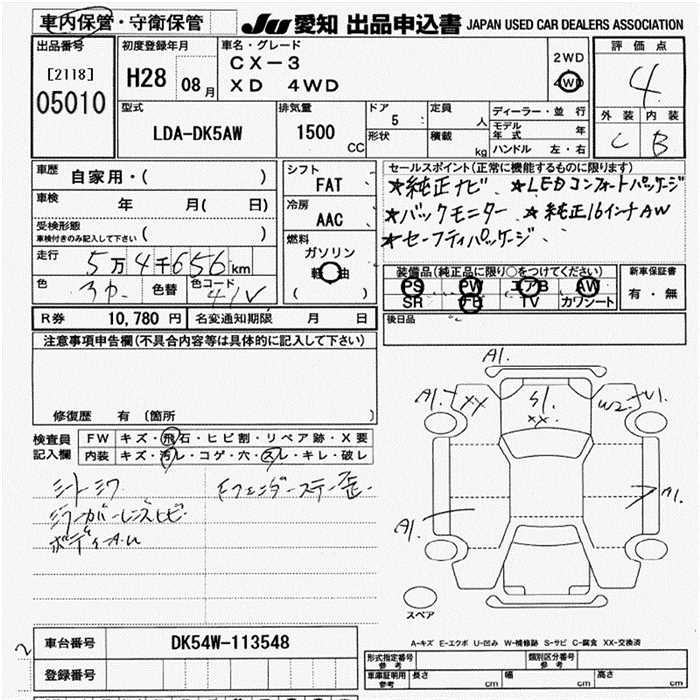 車内保管・守衛保管
JU 愛知 出品申込書 JAPAN USED CAR DEALERS ASSOCIATION
出品番号
[2118]
05010
初度登録年月
H28 08月
車名・グレード
CX-3
XD 4WD
2WD
4WD
評価点
4
外装 内装
C B
型式
LDA-DK5AW
排気量
1500
CC
ドア
5
形状
定員
人
積載
kg
ディーラー・並行
モデル年式 年
ハンドル 左・右
車歴
自家用・( )
車検
年 月( 日)
受検形態
車検付きのみ記入して下さい ( )
走行
5万4千656km
色
色替
色コード
41V
シフト
FAT
冷房
AAC
燃料
ガソリン
軽油
( )
セールスポイント(正常に機能するものに限ります)
★純正ナビ ★LEDコンフォートパッケージ
★バックモニター ★純正16インチAW
★セーフティパッケージ
装備品(純正品に限り○をつけてください)
PS PW エアB AW
SR TV カワシート
新車保証書
有・無
後日品
R券 10,780円 名変通知期限 月 日
注意事項申告欄(不具合内容等は具体的に記入して下さい)
修復歴 有 〔箇所 〕
検査員記入欄
FW キズ・飛石・ヒビ割・リペア跡・X要
内装 キズ・汚レ・コゲ・穴・スレ・キレ・破レ
シートシワ
Fフェンダーステー歪
ミラーカバーレンズヒビ
ボディA.U
A1.
A1. XX
S1.
XX
W2. U1.
A1.
A1.
スペア
A-キズ E-エクボ U-凹み W-補修跡 S-サビ C-腐食 XX-交換済
2
車台番号 DK54W-113548
登録番号
形式指定番号 参考
類別区分番号 参考
車庫証明用 参考
長さ cm 幅 cm 高さ cm